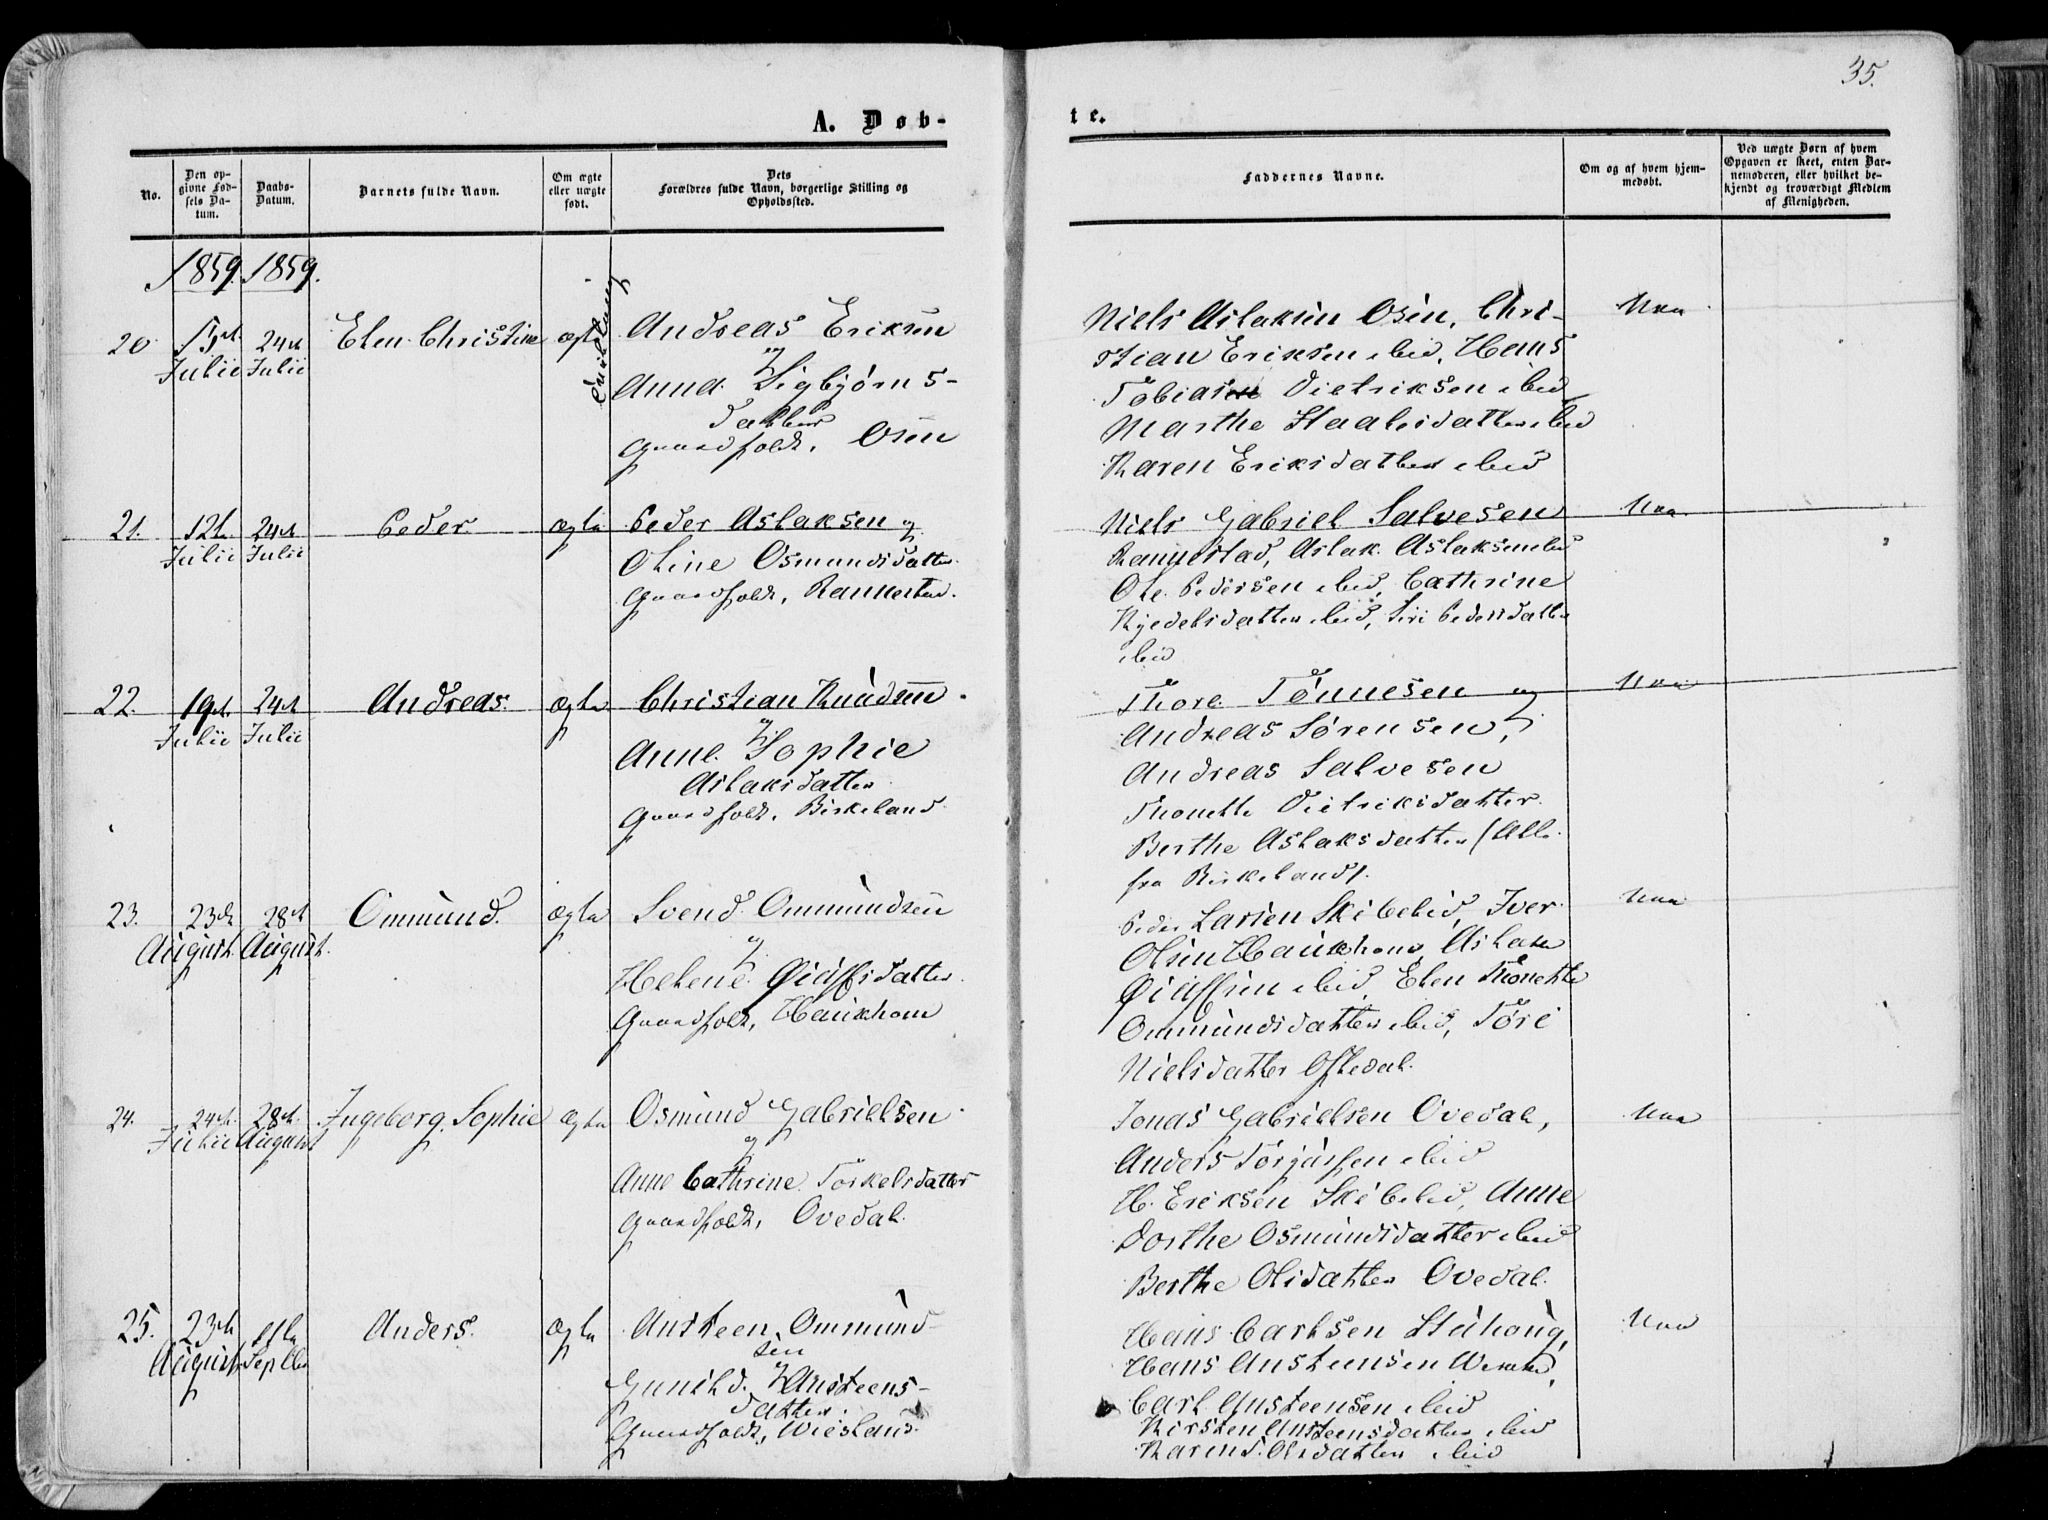 35.
A. Døb-
te.
No.
Den op-
givne Fød-
sels Da-
tum.
Daabs-
Datum.
Barnets fulde Navn.
Om ægte
eller uægte
født.
Dets
Forældres fulde Navn, borgerlige Stilling og
Opholdssted.
Faddernes Navne.
Om og af hvem hjem-
medøbt.
Ved uægte Børn af hvem
Opgaven er skeet, enten Bar-
nemoderen, eller hvilket be-
kjendt og troværdigt Medlem
af Menigheden.
1859. 1859.
20 24de Elen Christine ægte Andreas Eriksen
Julii Julii og
Anna Sigbjørns-
datter
Gaardfolk, Osen
Niels Aslaksen Osen, Chri- Naa
stian Eriksen ibid, Hans
Tobias Dietriksen ibid
Marthe Staalesdatter ibid
Karen Eriksdatter ibid
21. 12te 24de Peder ægte Peder Aslaksen og
Julii Julii Oline Osmundsdatter
Gaardfolk, Rannestad.
Niels Gabriel Salvesen Naa
Rannestad, Aslak Aslaksen ibid
Ole Pedersen ibid, Cathrine
Kjedelsdatter ibid, Siri Pedersdatter
ibid
22. 19de 24de Andreas. ægte Christian Knudsen
Julii Julii og
Anne Sophie
Aslaksdatter
Gaardfolk, Birkeland
Thore Tønnesen og Naa
Andreas Sørensen,
Andreas Salvesen
Thonette Dietriksdatter
Berthe Aslaksdatter (Alle
fra Birkeland).
23. 23de 28de Ommund. ægte Svend Ommundsen
August August. og
Helene Øiulfsdatter
Gaardfolk, Haukhom
Peder Larsen Skibelid, Iver Naa
Olsen Haukhom, Aslak
Øiulfsen ibid, Elen Thonette
Ommundsdatter ibid, Tøri
Nielsdatter Oftedal.
24. 24de 28de Ingeborg Sophie ægte Osmund Gabrielsen
Julii August og
Anne Cathrine Torkelsdatter
Gaardfolk, Ovedal.
Jonas Gabrielsen Ovedal, Naa
Anders Torjussen ibid
H. Eriksen Skibelid, Anne
Dorthe Osmundsdatter ibid
Berthe Olsdatter Ovedal.
25. 23de Anders. ægte Ansteen Ommund-
August Septbr sen
og
Gunild Ansteens-
datter.
Gaardfolk,
Hans Carlsen Naa
Hans Ansteensen
Carl Ansteensen ibid
Kirsten Ansteensdatter ibid
Karen S. Olsdatter ibid